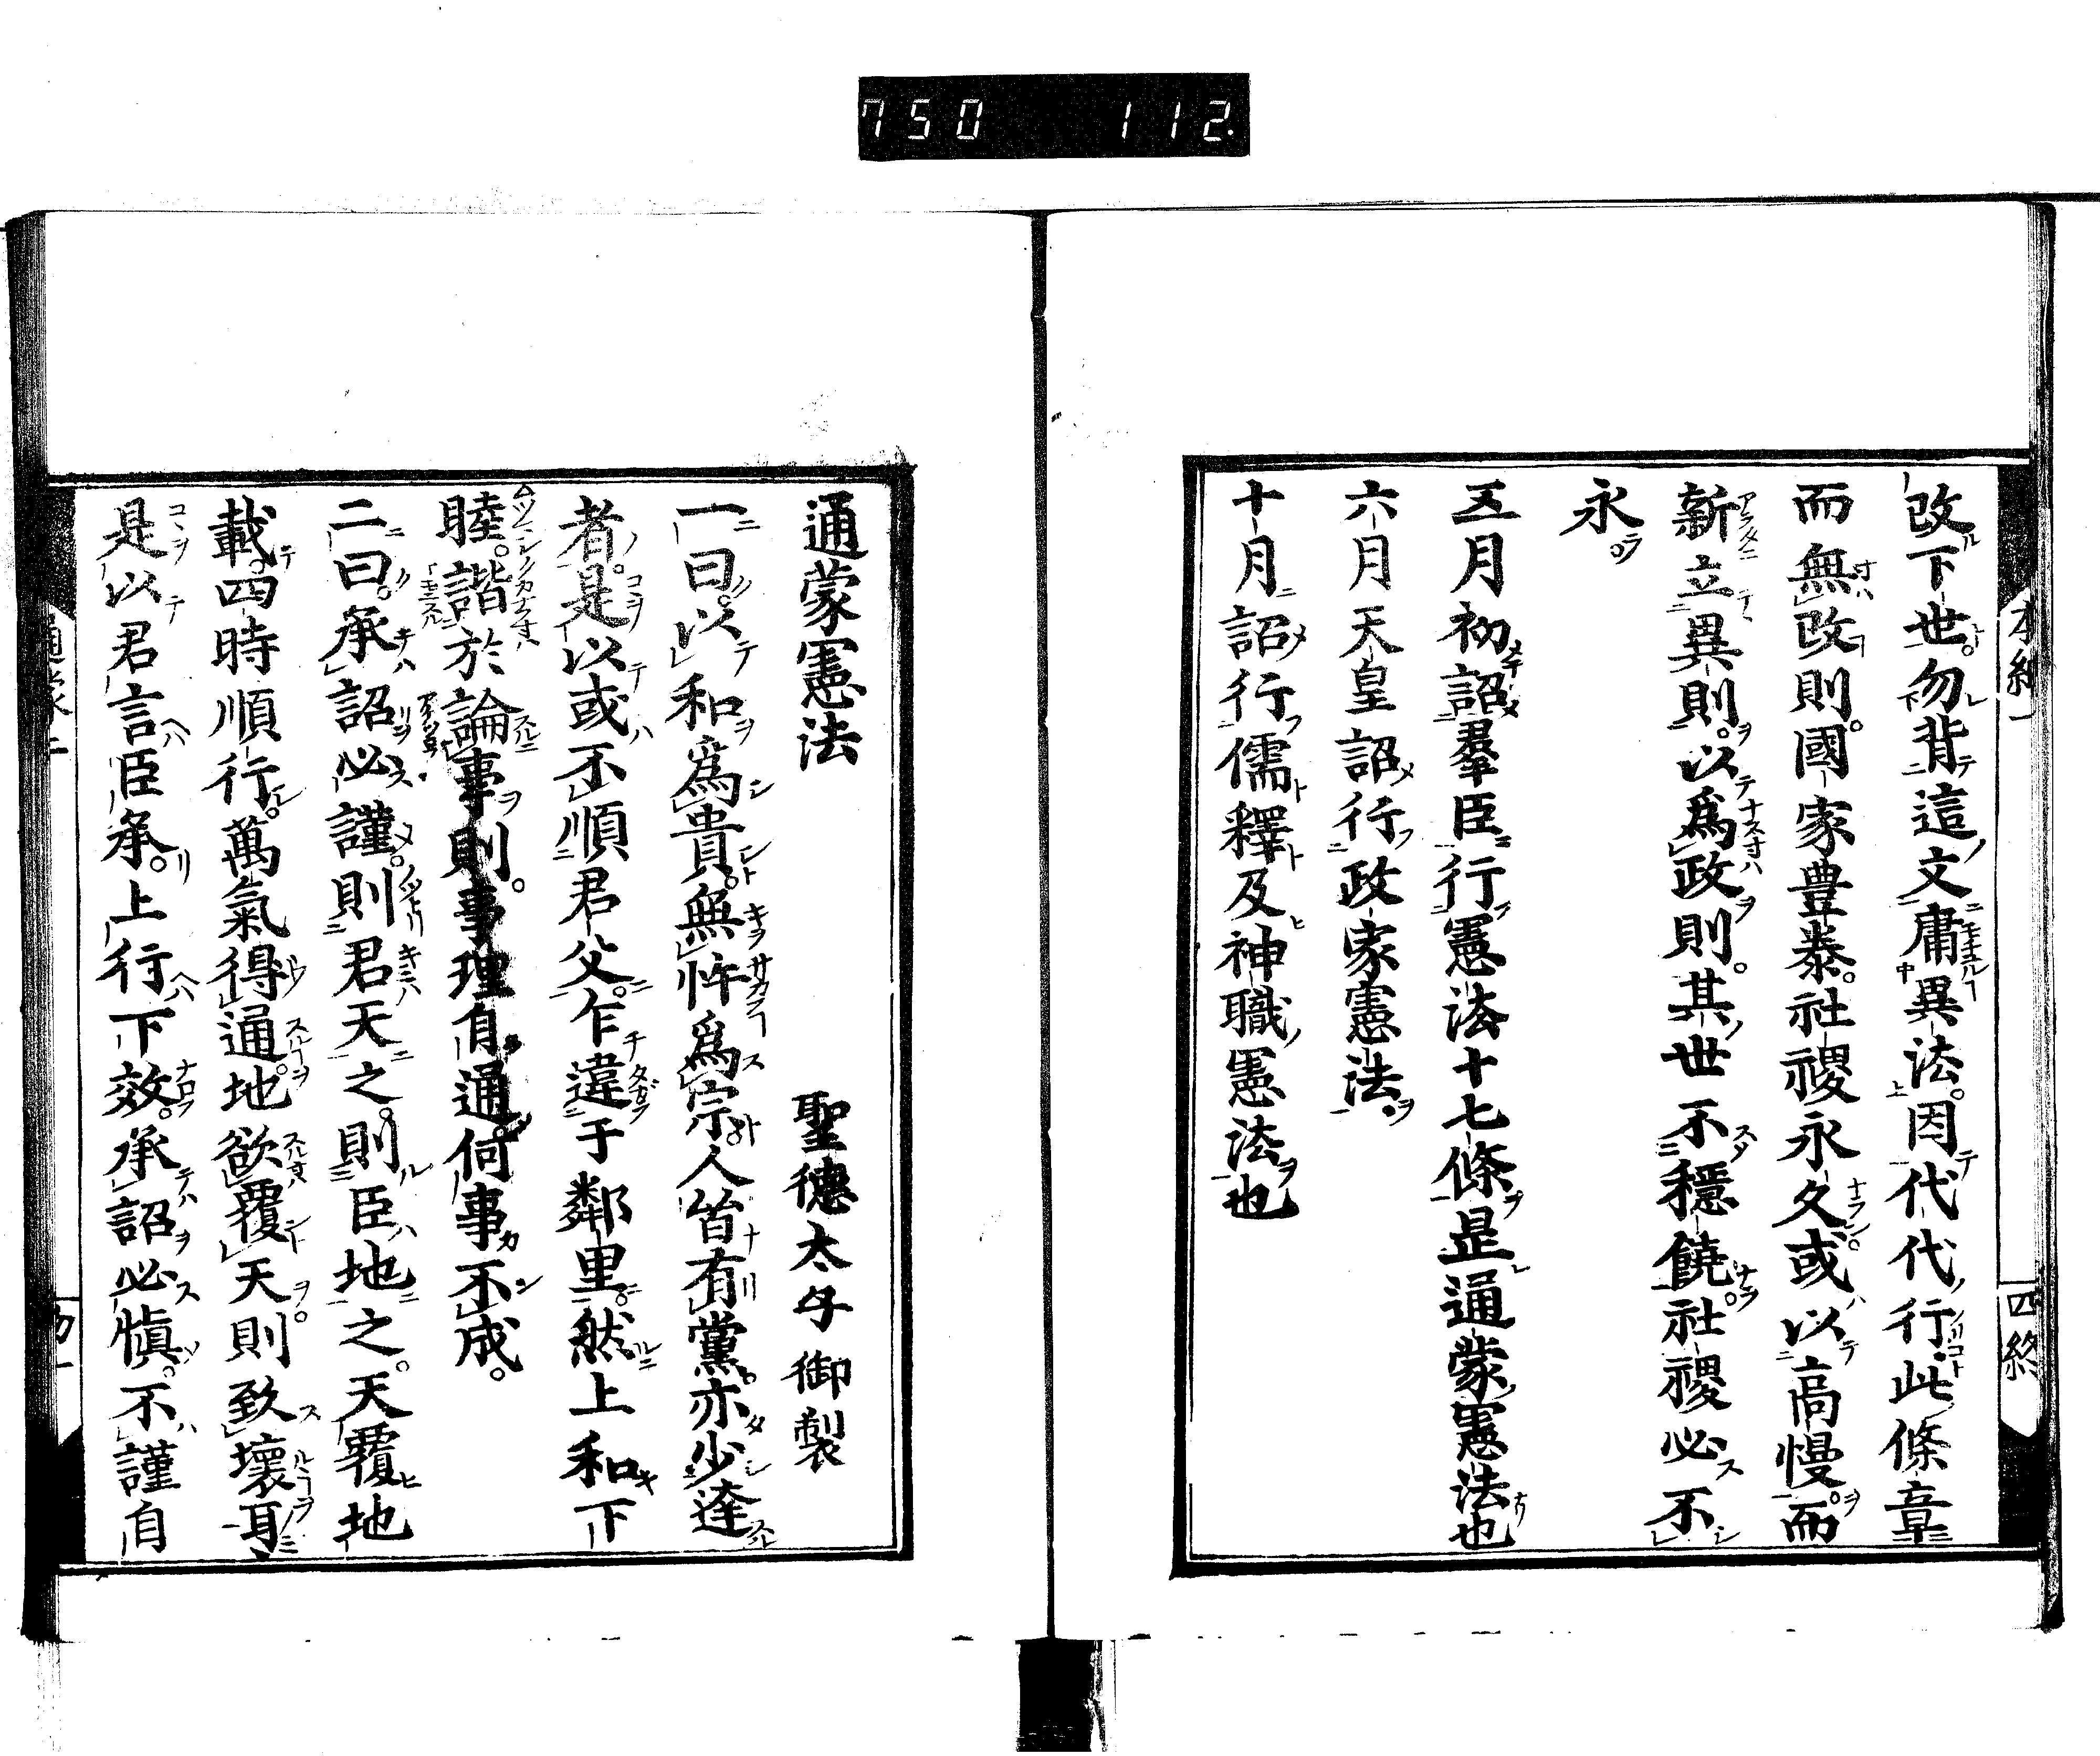 750 112
改下世勿背這文庸異法因代代行此條章
而無改則國家豊泰社稷永久或以高慢而
新立異則以爲政則其世不穩饒社稷必不
永
五月初詔羣臣行憲法十七條是通蒙憲法也
六月天皇詔行政家憲法
十月詔行儒釋及神職憲法也
四終
通蒙憲法 聖德太子御製
一曰以和爲貴無忤爲宗人皆有黨亦少達
者是以或不順君父乍違于鄰里然上和下
睦諧於論事則事理自通何事不成
二曰承詔必謹則君天之則臣地之天覆地
載四時順行萬氣得通地欲覆天則致壞耳
是以君言臣承上行下效承詔必愼不謹自